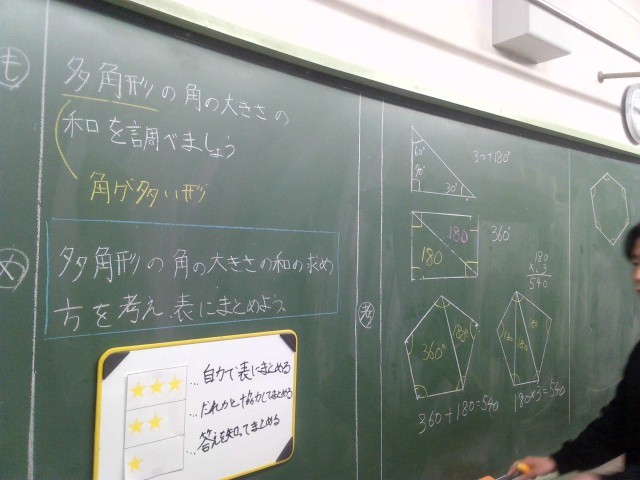 も
多角形の角の大きさの
和を調べましょう
角が多い形
め
多角形の角の大きさの和の求め
方を考え、表にまとめよう。
★★★ …自力で表にまとめる
★★ …だれかと協力してまとめる
★ …答えを知ってまとめる
考
60°
90°
30°
180
180
360°
180
×3
540
360°
180°
360+180=540
180
180×3=540